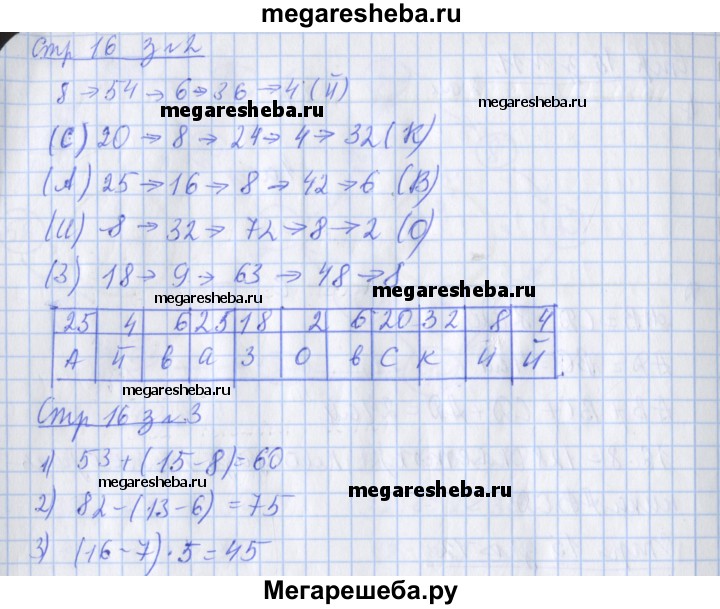 megaresheba.ru
Стр 16 з №2
8 → 54 → 6 → 36 → 4 (й)
megaresheba.ru megaresheba.ru
(С) 20 → 8 → 24 → 4 → 32 (К)
(А) 25 → 16 → 8 → 42 → 6 (В)
(И) 8 → 32 → 72 → 8 → 2 (О)
(З) 18 → 9 → 63 → 48 → 8
megaresheba.ru megaresheba.ru
25 4 6 25 18 2 6 20 32 8 4
А й в а З О в С К и й
megaresheba.ru
Стр 16 з №3
1) 53 + (15 - 8) = 60
megaresheba.ru megaresheba.ru
2) 82 - (13 - 6) = 75
3) (16 - 7) · 5 = 45
Мегарешеба.ру